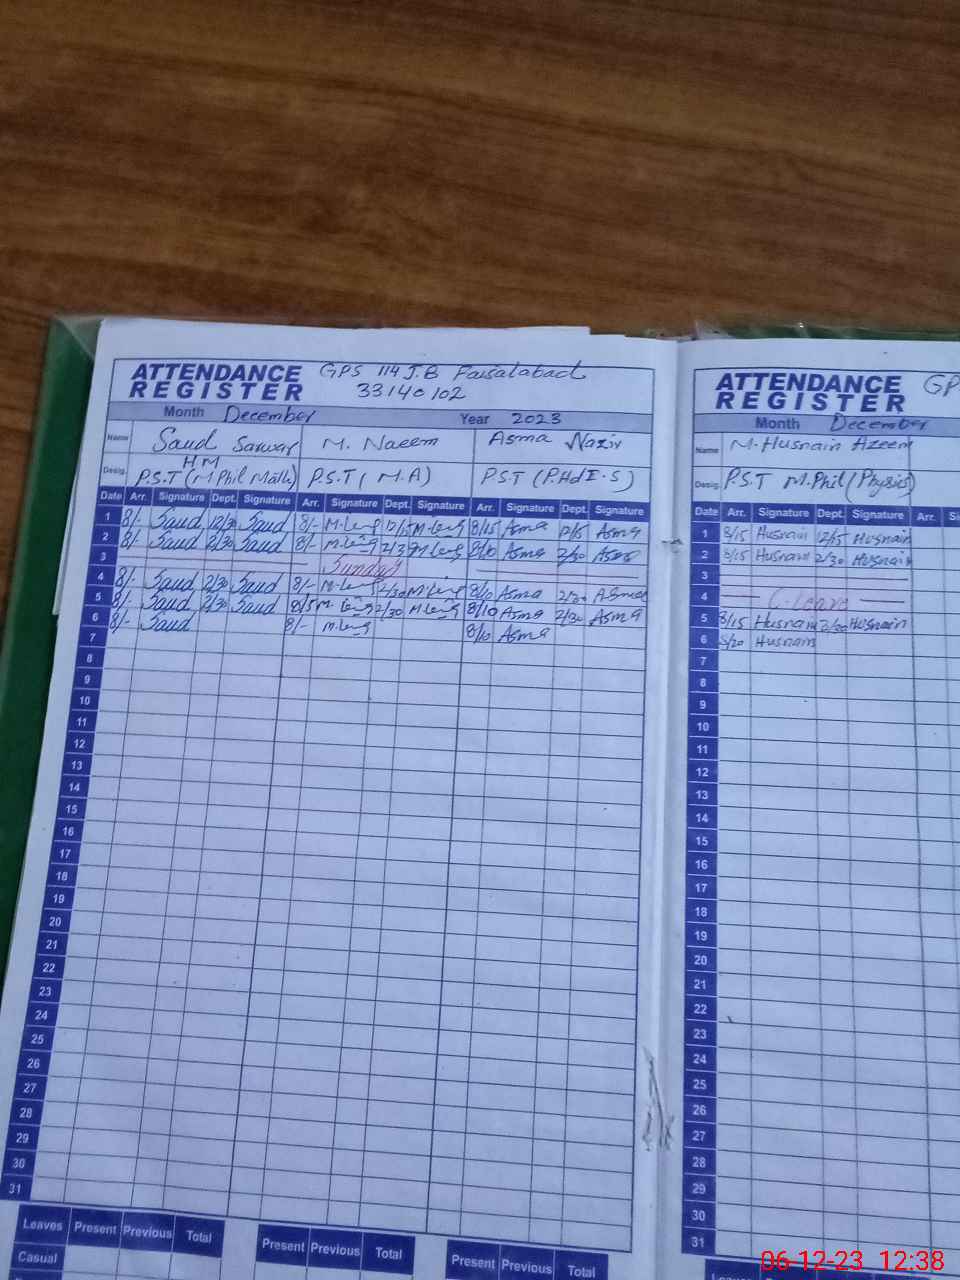 ATTENDANCE REGISTER GPS 114 J.B Faisalabad
33140102
Month December Year 2023
Name Saud Sarwar M. Naeem Asma Nazir
H M
Desig. P.S.T (M Phil Math) P.S.T ( M.A) P.S.T (P.Hd I.S)
Date Arr. Signature Dept. Signature Arr. Signature Dept. Signature Arr. Signature Dept. Signature
1 8/- Saud 12/30 Saud 8/- 12/15 8/15 Asma 12/15 Asma
2 8/- Saud 2/30 Saud 8/- 2/30 8/10 Asma 2/30 Asma
3 Sunday
4 8/- Saud 2/30 Saud 8/- 2/30 8/10 Asma 2/30 Asma
5 8/- Saud 2/30 Saud 8/5 2/30 8/10 Asma 2/30 Asma
6 8/- Saud 8/- 8/10 Asma
7
8
9
10
11
12
13
14
15
16
17
18
19
20
21
22
23
24
25
26
27
28
29
30
31
Leaves Present Previous Total Present Previous Total Present Previous Total
Casual
ATTENDANCE REGISTER GP
Month December
Name M. Husnain Azeem
Desig. P.S.T M.Phil (Physics)
Date Arr. Signature Dept. Signature Arr.
1 8/15 Husnain 12/15 Husnain
2 8/15 Husnain 2/30 Husnain
3
4 C. leave
5 8/15 Husnain 2/30 Husnain
6 8/20 Husnain
7
8
9
10
11
12
13
14
15
16
17
18
19
20
21
22
23
24
25
26
27
28
29
30
31
06-12-23 12:38